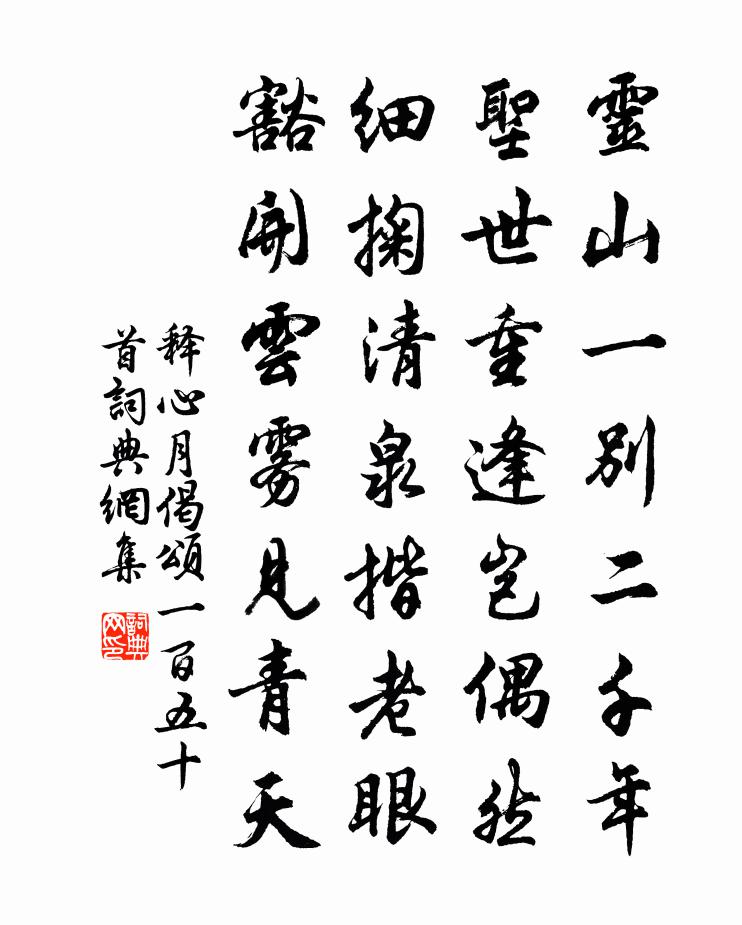 靈山一別二千年
聖世重逢豈偶然
細掬清泉揩老眼
豁開雲霧見青天
释心月偈頌一百五十
首詞典網集
詞典网印